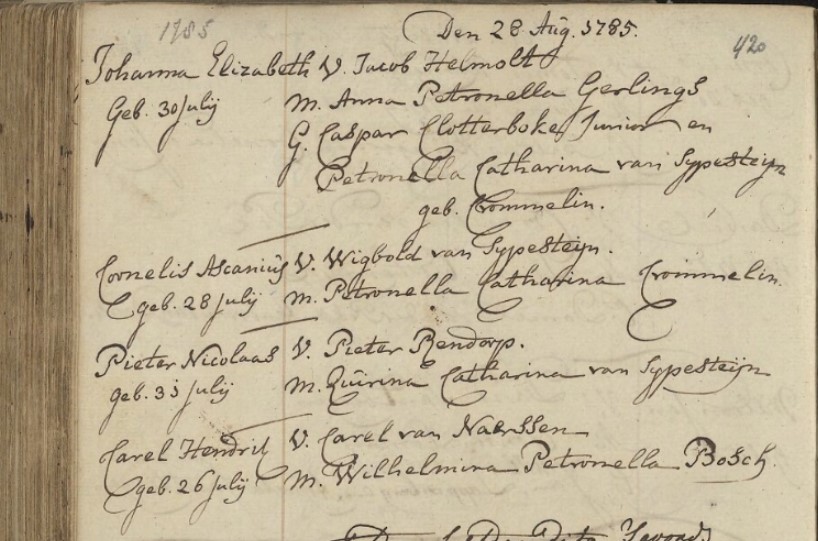 1785
Den 28 Aug. 1785.
420
Johanna Elizabeth V. Jacob Helmolt
Geb. 30 Julij M. Anna Petronella Gerlings
G. Caspar Clotterboke Junior en
Petronella Catharina van Sypesteijn
geb. Crommelin.
Cornelis Ascanius V. Wigbold van Sypesteijn.
geb. 28 Julij M. Petronella Catharina Crommelin.
Pieter Nicolaas V. Pieter Rendorp.
geb. 31 Julij M. Quirina Catharina van Sypesteijn
Carel Hendrik V. Carel van Naerssen
geb. 26 Julij M. Wilhelmina Petronella Bosch.